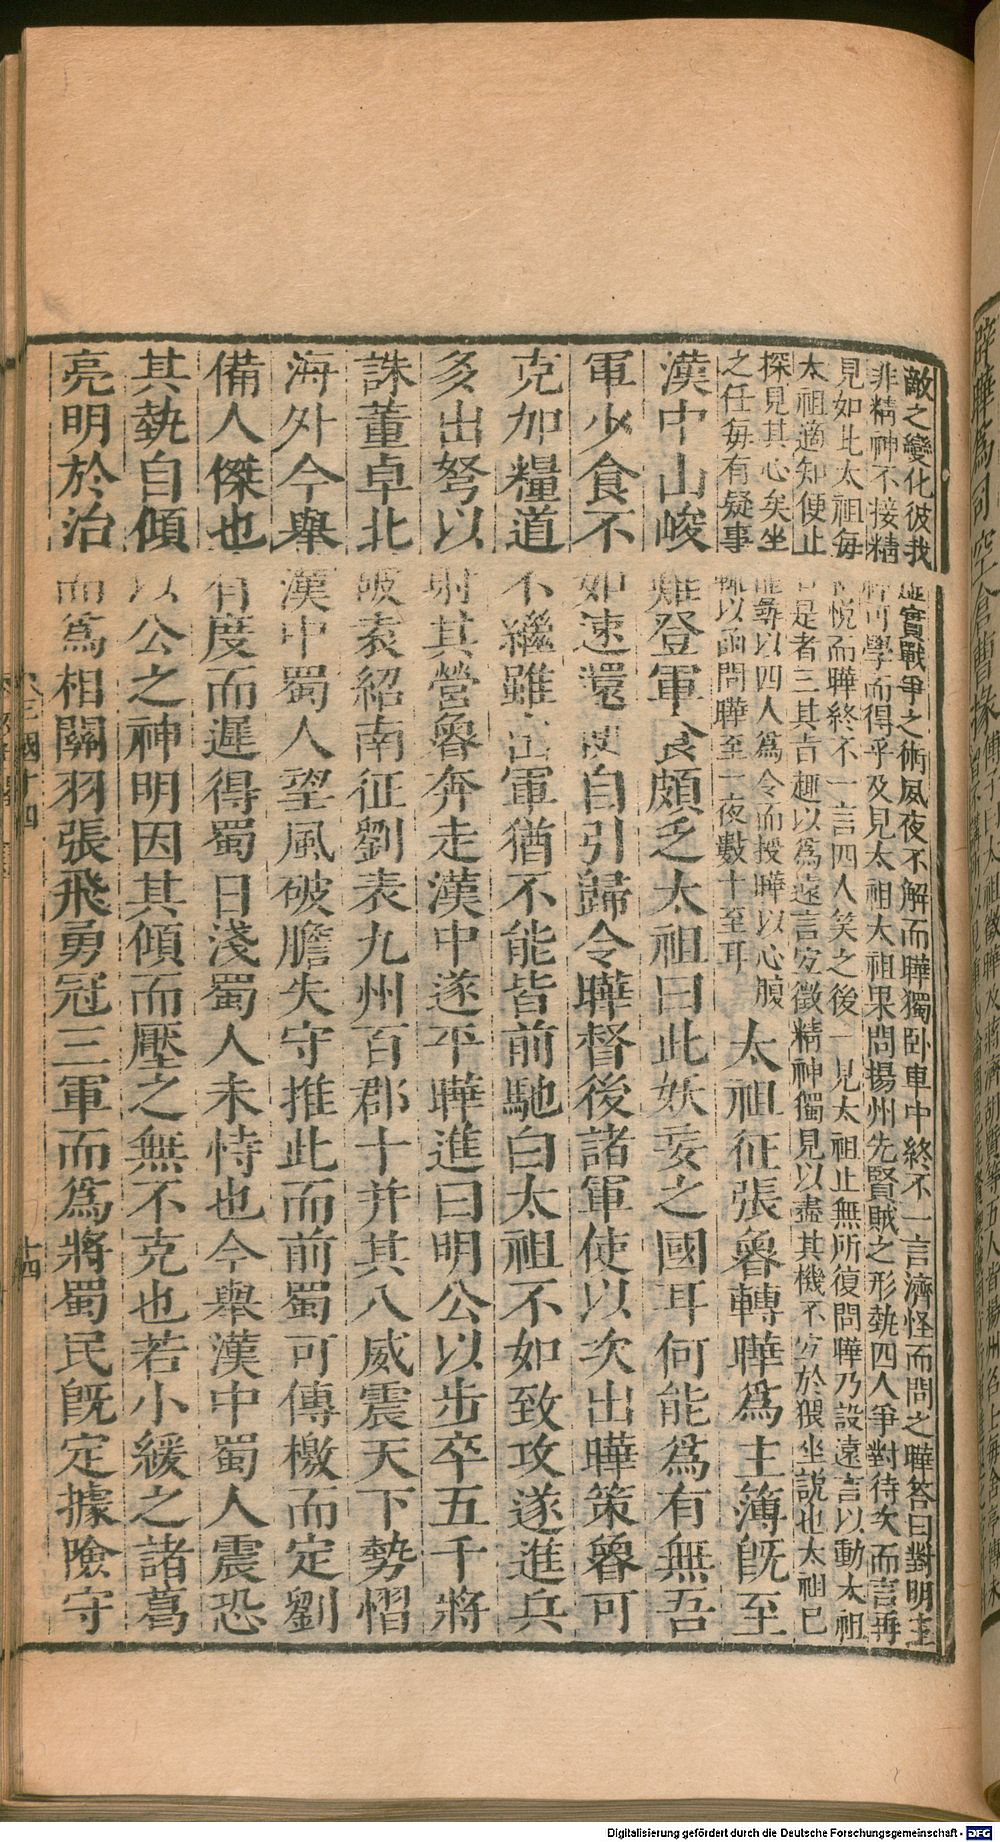 敵之變化彼我虛實戰爭之術夙夜不解而曄獨卧車中終不一言濟怪而問之曄答曰對明主
非精神不接精神可學而得乎及見太祖太祖果問揚州先賢賊之形埶四人爭對待次而言再
見如此太祖每和悅而曄終不一言四人笑之後一見太祖止無所復問曄乃設遠言以動太祖
太祖適知便止若是者三其吉趣以爲遠言宜徵精神獨見以盡其機不宜於猥坐說也太祖已
探見其心矣坐罷尋以四人爲令而授曄以心腹
之任每有疑事輒以函問曄至一夜數十至耳
太祖征張魯轉曄爲主簿旣至
漢中山峻難登軍食頗乏太祖曰此妖妄之國耳何能爲有無吾
軍少食不如速還便自引歸令曄督後諸軍使以次出曄策魯可
克加糧道不繼雖出軍猶不能皆前馳白太祖不如致攻遂進兵
多出弩以射其營魯奔走漢中遂平曄進曰明公以步卒五千將
誅董卓北破袁紹南征劉表九州百郡十并其八威震天下勢慴
海外今舉漢中蜀人望風破膽失守推此而前蜀可傳檄而定劉
備人傑也有度而遲得蜀日淺蜀人未恃也今舉漢中蜀人震恐
其埶自傾以公之神明因其傾而壓之無不克也若小緩之諸葛
亮明於治而爲相關羽張飛勇冠三軍而爲將蜀民旣定據險守
十四
Digitalisierung gefördert durch die Deutsche Forschungsgemeinschaft - DFG